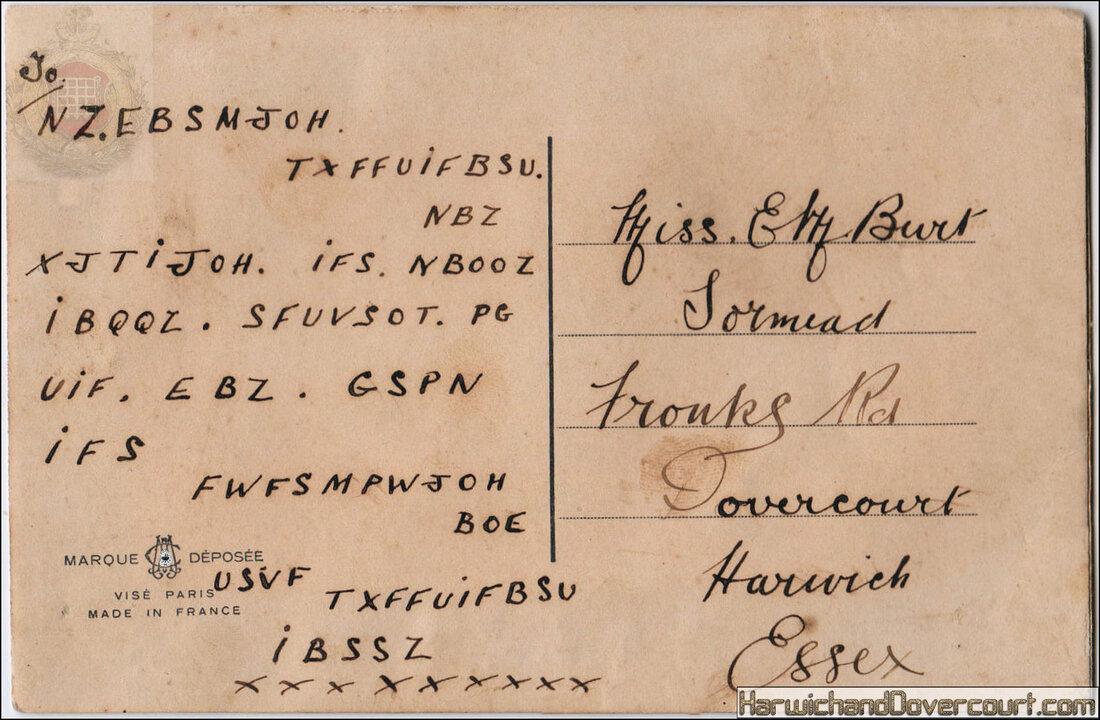 To.
NZ. EBSMJOH.
TXFFUiFBSU.
NBZ
XJTiJOH. iFS. NBOOZ
iBQQZ. SFUVSOT. PG
UiF. EBZ. GSPN
iFS
FWFSMPWJOH
BOE
USVF
TXFFUiFBSU
iBSSZ
x x x x x x x x x
MARQUE DÉPOSÉE
VISÉ PARIS
MADE IN FRANCE
Miss. E M Burt
Tormead
Fronks Rd
Dovercourt
Harwich
Essex
HarwichandDovercourt.com